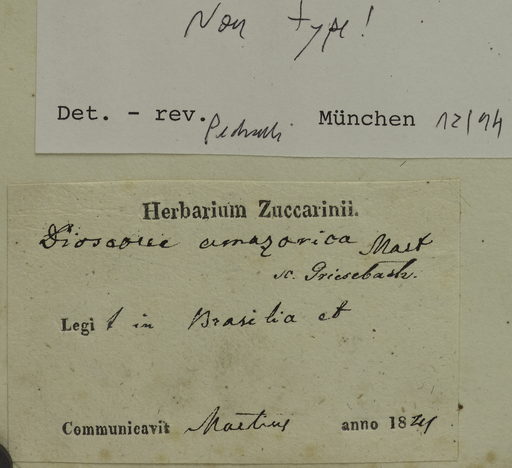 Non type!
Det. - rev. Pedralli München 12/94
Herbarium Zuccarinii.
Dioscorea amazonica Mart
sc. Griesebach.
Legit in Brasilia et
Communicavit Martius anno 18